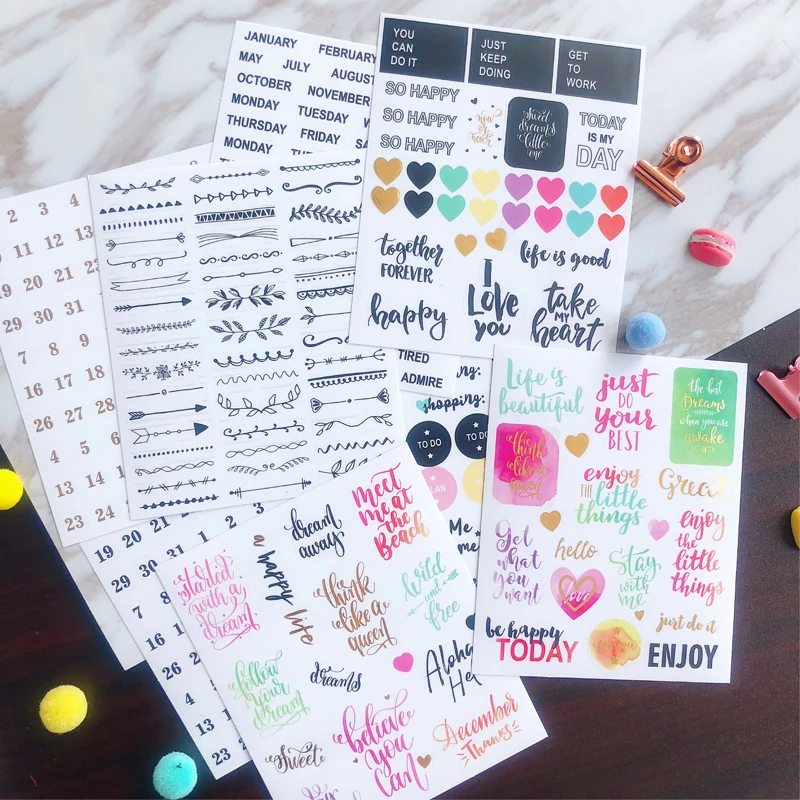 JANUARY FEBRUARY
MAY JULY AUGUST
OCTOBER NOVEMBER
MONDAY TUESDAY
THURSDAY FRIDAY
MONDAY TUESDAY
YOU
CAN
DO IT
JUST
KEEP
DOING
GET
TO
WORK
SO HAPPY
SO HAPPY
SO HAPPY
sweet
dreams
little
one
TODAY
IS MY
DAY
together
FOREVER
life is good
happy
I
Love
you
take
MY
heart
2 3 4
11 12 13
19 20 21 23
29 30 31
7 8 9
16 17 18
26 27 28
4 5 6
13 14 15
23 24
TIRED
ADMIRE
shopping:
TO DO
TO DO
1 2 3
Life is
beautiful
just
DO
YOUR
BEST
the best
Dreams
HAPPEN
when you are
awake
think
like a
queen
enjoy
THE little
things
Great
Get
what
you
want
hello
Stay
with
me
enjoy
the
little
things
love
be happy
TODAY
just do it
ENJOY
started
with a
dream
a happy life
dream
away
meet
me at
the
Beach
think
like a
queen
wild
and
free
follow
your
dream
dreams
Aloha
Sweet
believe
you
can
December
Thanks